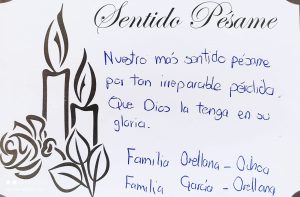 Sentido Pésame
Nuestro más sentido pésame
por tan irreparable pérdida.
Que Dios la tenga en su
gloria.
Familia Orellana - Ochoa
Familia García - Orellana